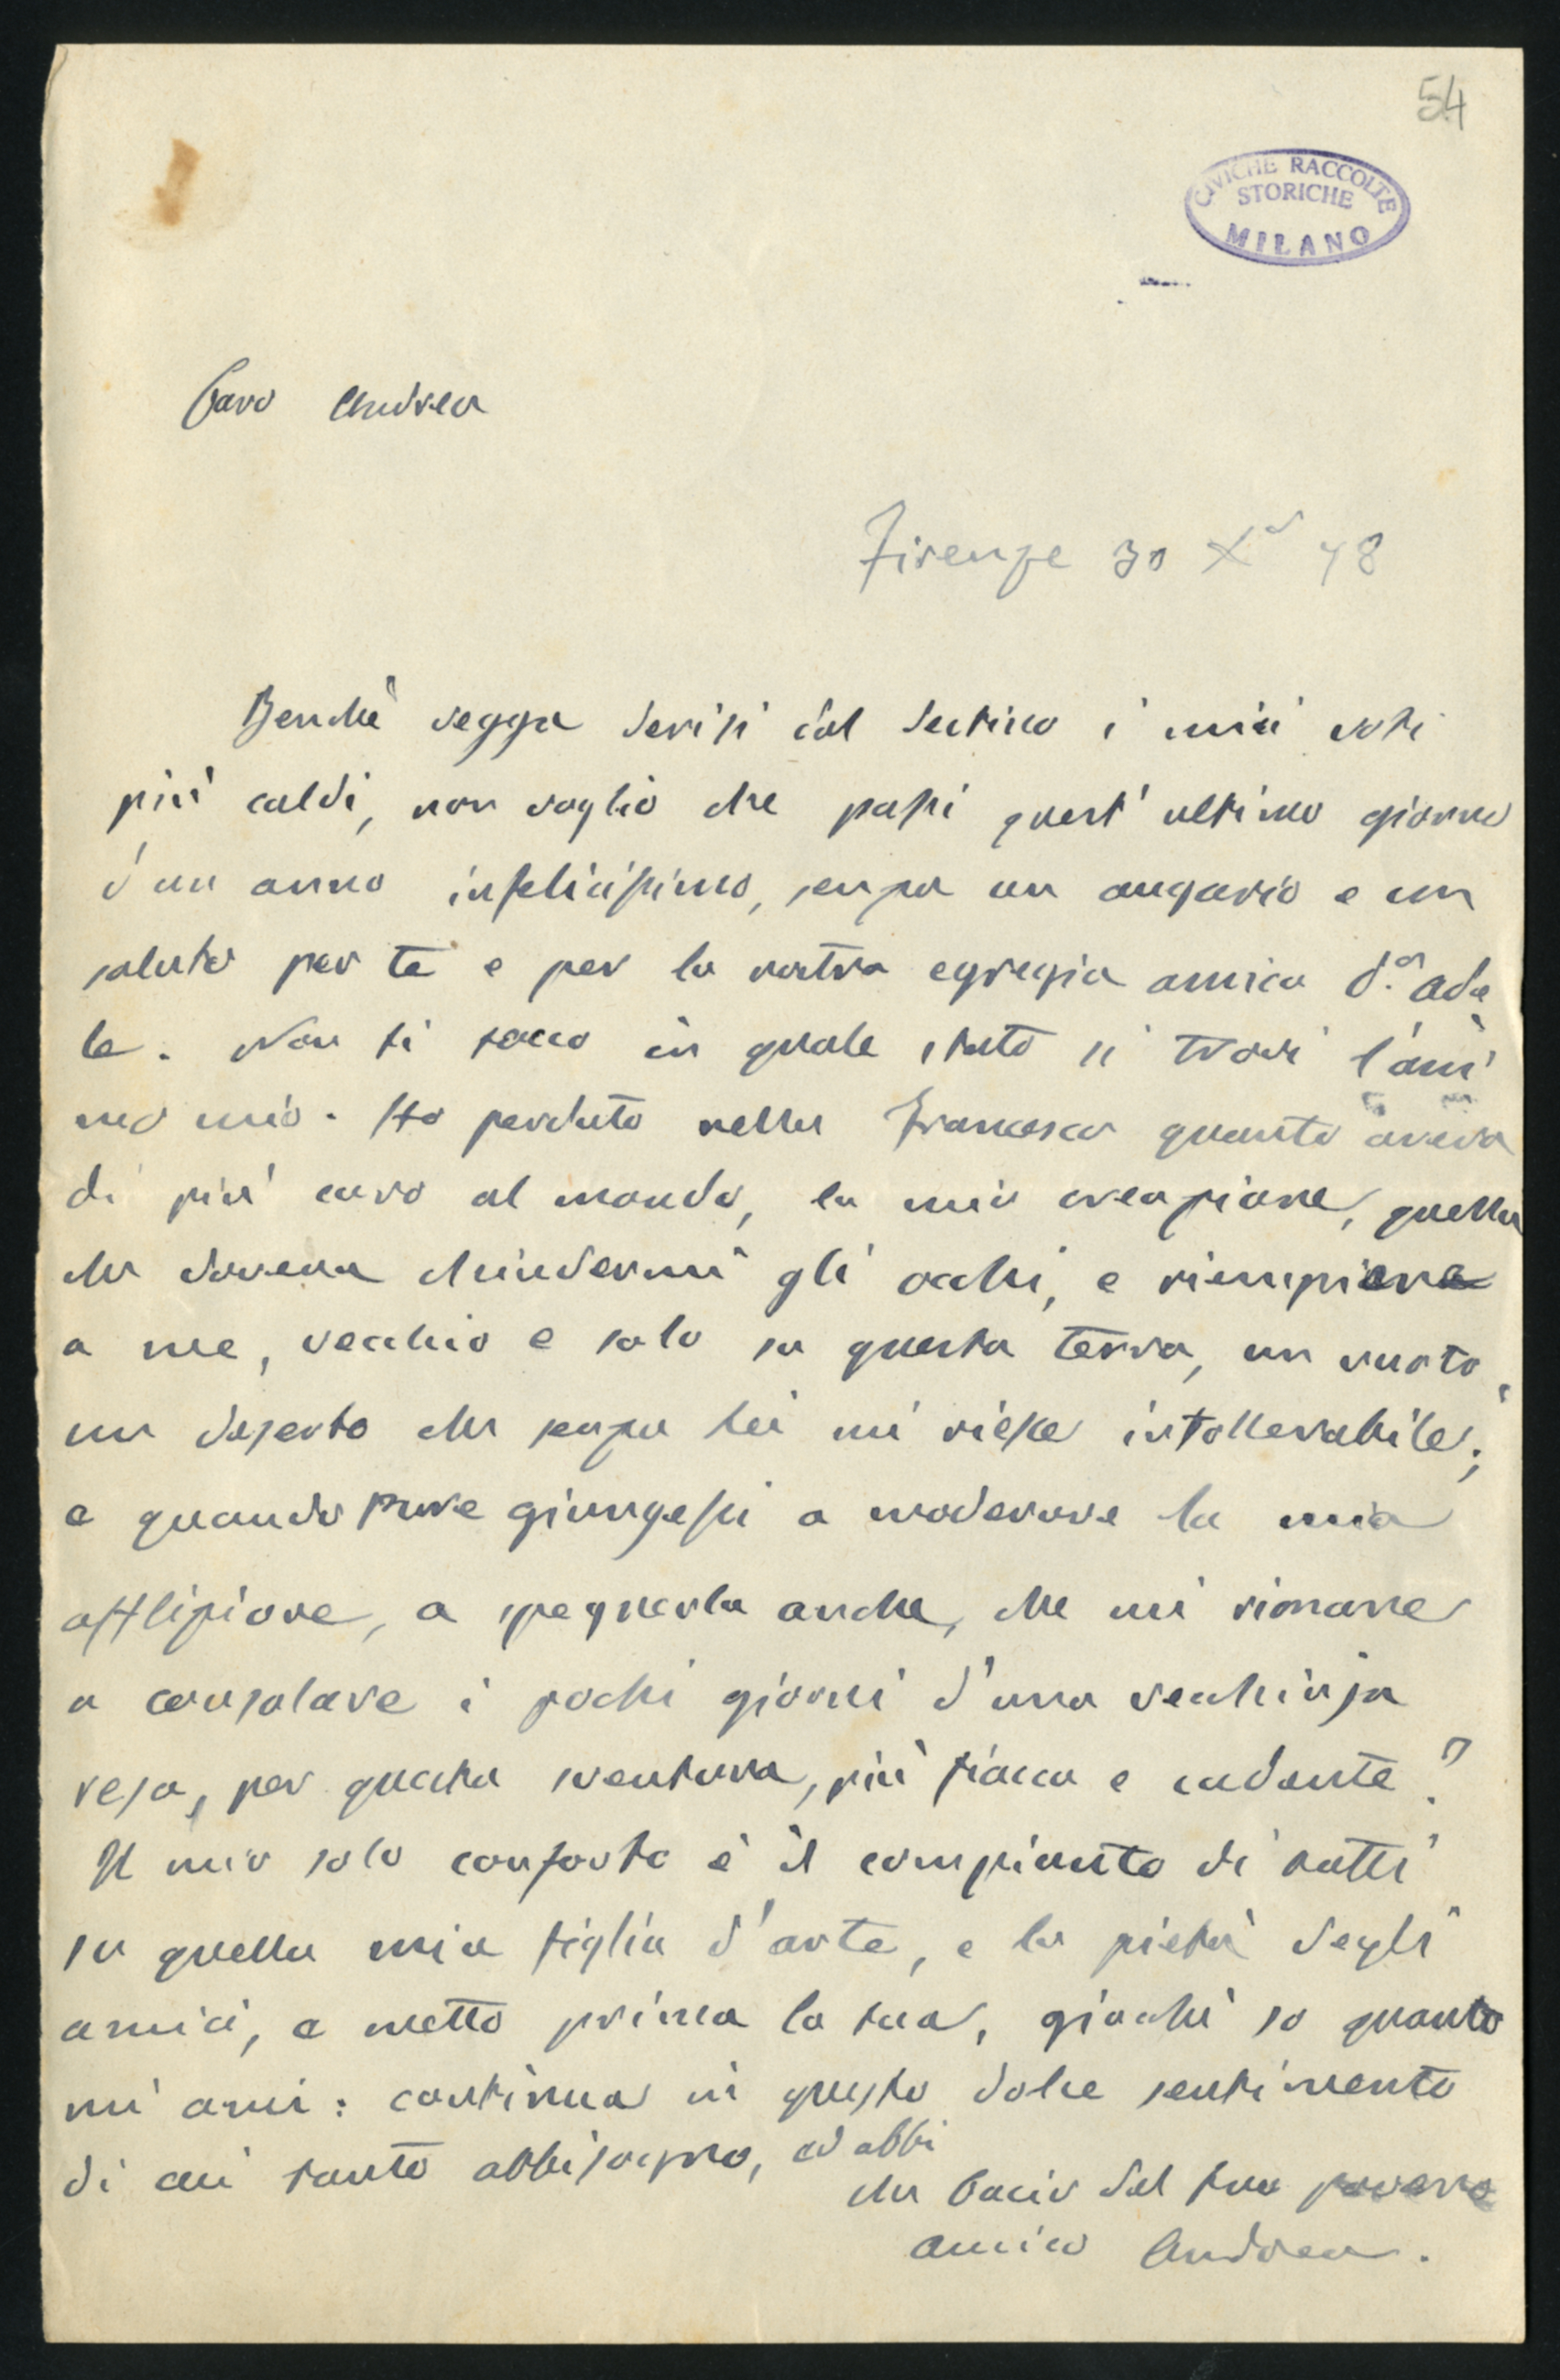 54
CIVICHE RACCOLTE
STORICHE
MILANO
Caro Andrea
Firenze 30 Xº 48
Benchè vegga derisi dal destino i miei voti
più caldi, non voglio che passi quest'ultimo giorno
d'un anno infelicissimo, senza un augurio e un
saluto per te e per la nostra egregia amica d.ª Ade
le. Non ti tocco in quale stato si trovi l'ani
mo mio. Ho perduto nella Francesca quanto aveva
di più caro al mondo, la mia creazione, quella
che doveva chiudermi gli occhi, e riempiere
a me, vecchio e solo su questa terra, un vuoto,
un deserto che senza lei mi riesce intollerabile;
e quando pure giungessi a moderare la mia
afflizione, a spegnerla anche, che mi rimane
a consolare i pochi giorni d'una vecchiaja
resa, per questa sventura, più fiacca e cadente?
Il mio solo conforto è il compianto di tutti
su quella mia figlia d'arte, e la pietà degli
amici, e metto prima la tua, giacchè so quanto
mi ami: continua in questo dolce sentimento
di cui tanto abbisogno, ed abbi
un bacio dal tuo povero
amico Andrea.